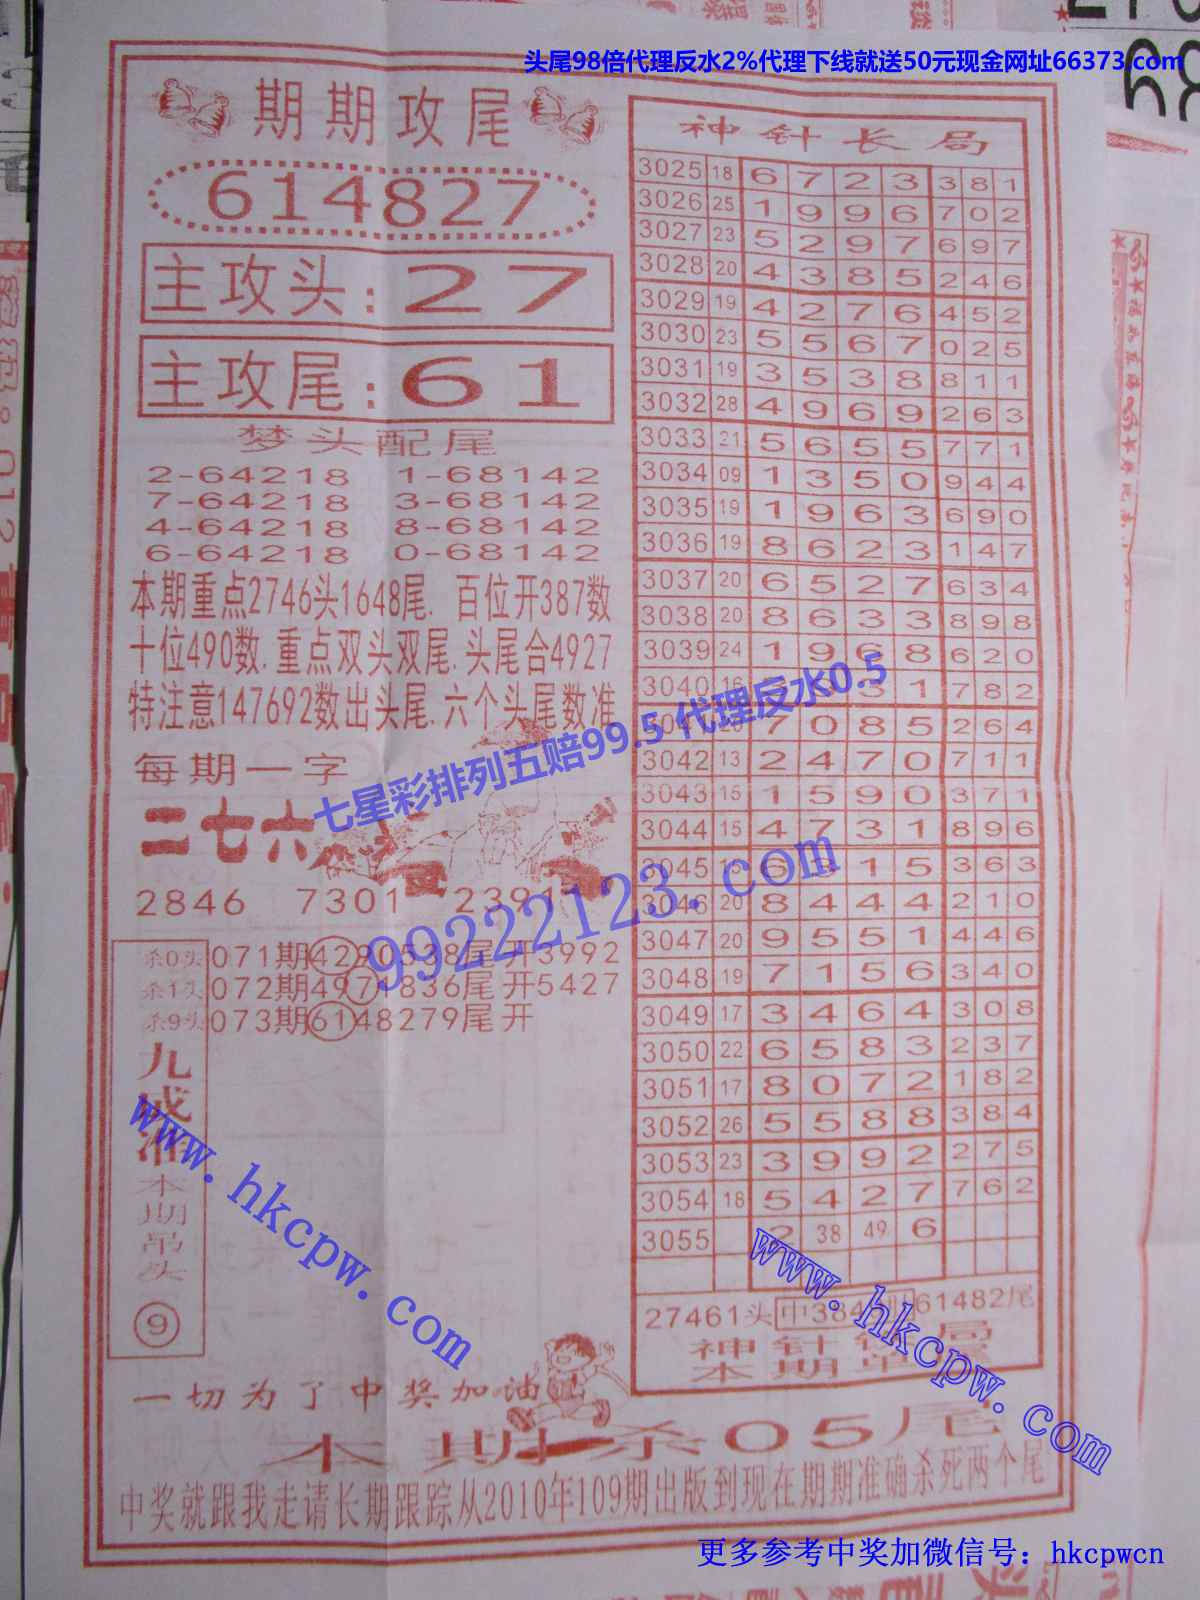 头尾98倍代理反水2%代理下线就送50元现金网址66373.com
期期攻尾
614827
主攻头:27
主攻尾:61
梦头配尾
2-64218 1-68142
7-64218 3-68142
4-64218 8-68142
6-64218 0-68142
本期重点2746头1648尾.百位开387数
十位490数.重点双头双尾.头尾合4927
特注意147692数出头尾.六个头尾数准
每期一字
二七六
2846 7301 2391
杀0头 071期4290538尾开3992
杀1头 072期4971836尾开5427
杀9头 073期6148279尾开
九成准
本期杀头
9
一切为了中奖加油
神针长局
3025 18 6 7 2 3 3 8 1
3026 25 1 9 9 6 7 0 2
3027 23 5 2 9 7 6 9 7
3028 20 4 3 8 5 2 4 6
3029 19 4 2 7 6 4 5 2
3030 23 5 5 6 7 0 2 5
3031 19 3 5 3 8 8 1 1
3032 28 4 9 6 9 2 6 3
3033 21 5 6 5 5 7 7 1
3034 09 1 3 5 0 9 4 4
3035 19 1 9 6 3 6 9 0
3036 19 8 6 2 3 1 4 7
3037 20 6 5 2 7 6 3 4
3038 20 8 6 3 3 8 9 8
3039 24 1 9 6 8 6 2 0
3040 16 3 1 7 8 2
20 7 0 8 5 2 6 4
3042 13 2 4 7 0 7 1 1
3043 15 1 5 9 0 3 7 1
3044 15 4 7 3 1 8 9 6
3045 6 1 5 3 6 3
3046 20 8 4 4 4 2 1 0
3047 20 9 5 5 1 4 4 6
3048 19 7 1 5 6 3 4 0
3049 17 3 4 6 4 3 0 8
3050 22 6 5 8 3 2 3 7
3051 17 8 0 7 2 1 8 2
3052 26 5 5 8 8 3 8 4
3053 23 3 9 9 2 2 7 5
3054 18 5 4 2 7 7 6 2
3055 2 38 49 6
27461头 中384 61482尾
神针
本期
本期杀05尾
中奖就跟我走请长期跟踪从2010年109期出版到现在期期准确杀死两个尾
七星彩排列五赔99.5 代理反水0.5
99222123.com
www.hkcpw.com
www.hkcpw.com
更多参考中奖加微信号：hkcpwcn